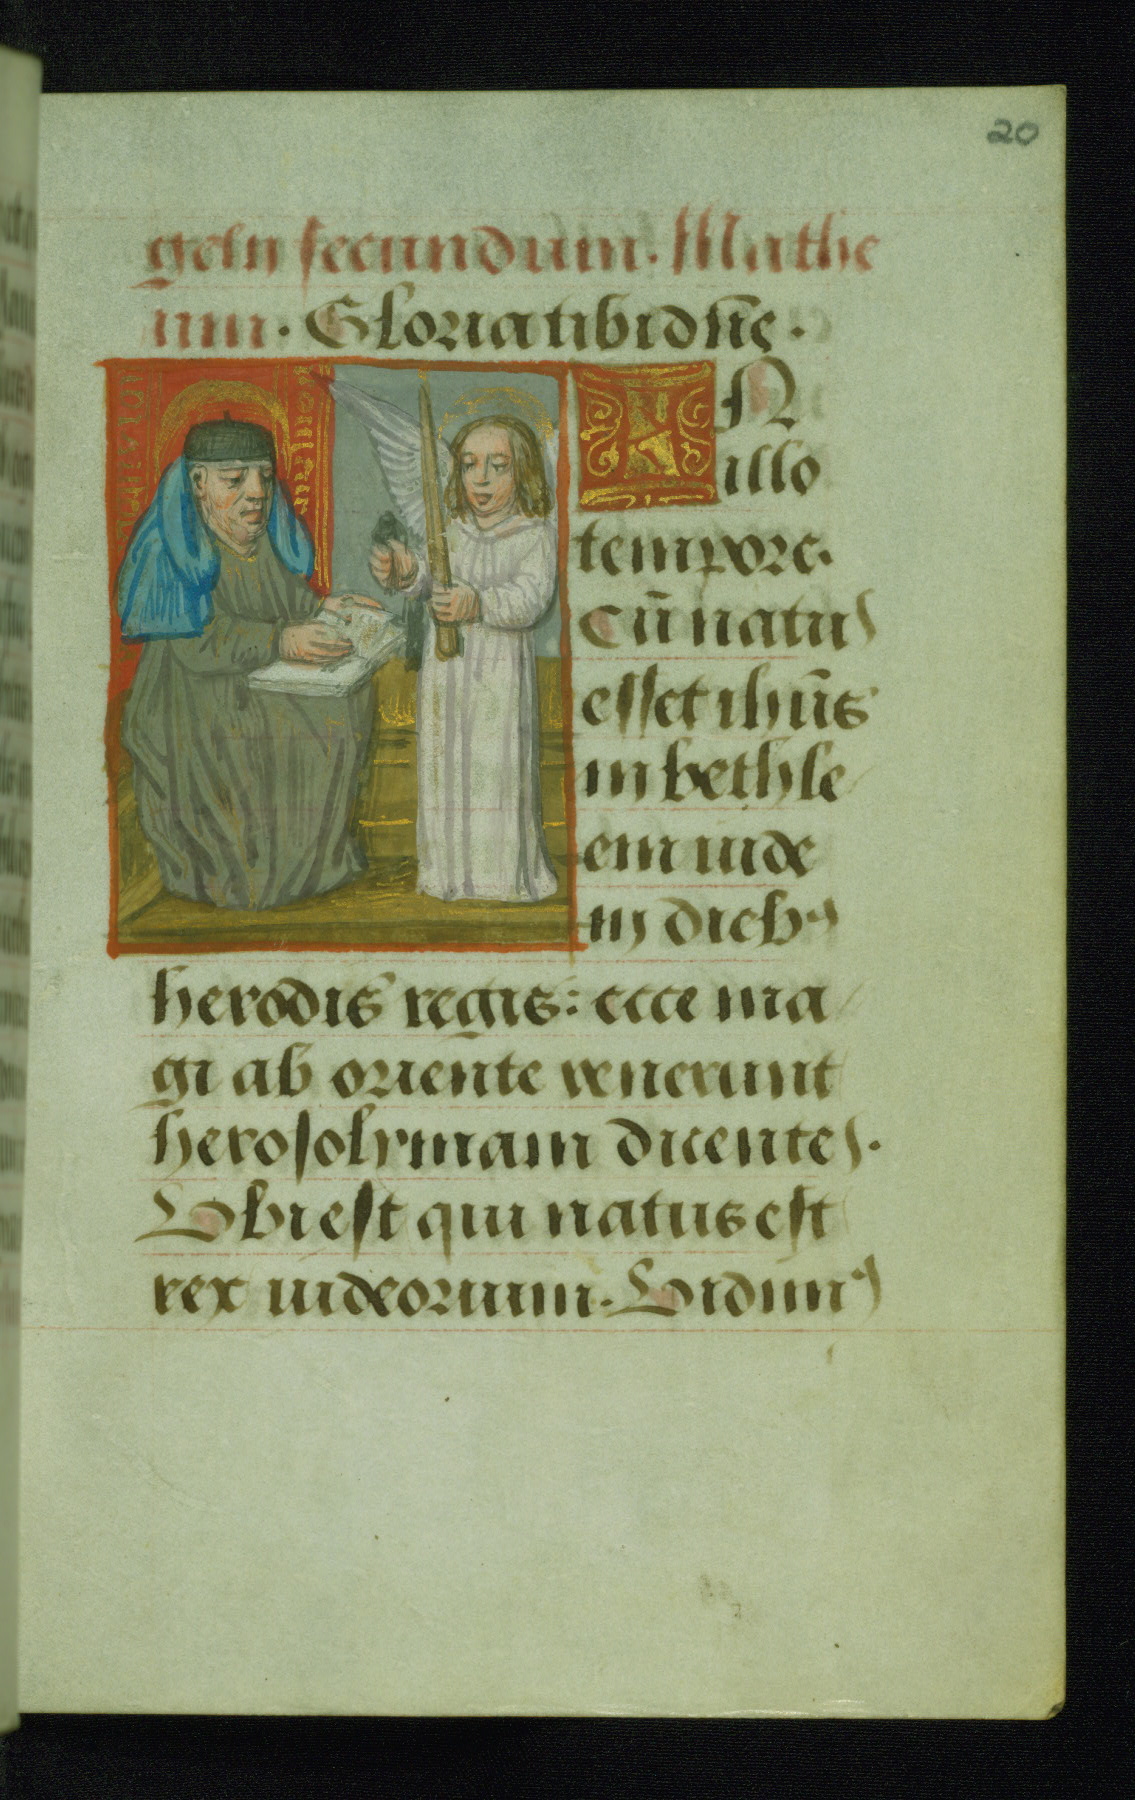 20
gely secundum. Mathe
um. Gloria tibi dñe.
IN
illo
tempore.
Cū natus
esset ihūs
in bethle
em iude
in dieb9
herodis regis: ecce ma
gi ab oriente venerunt
herosolymam dicentes.
Ubi est qui natus est
rex iudeorum. Vidim9